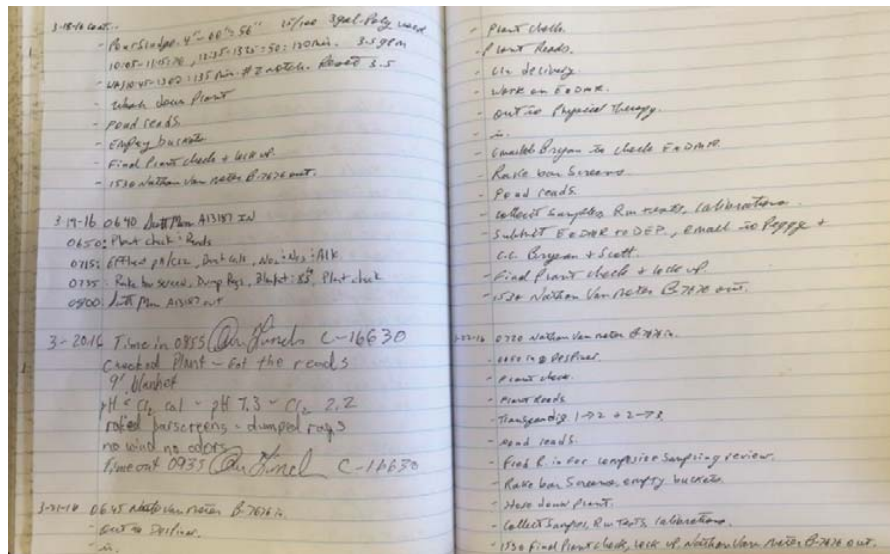 3-18-16 cont...
- Pour Sludge. 4"-00" = 56" 15/100 3gal. Poly used
10:05-11:15=70, 12:35-1325=50=120min. 3.5 gpm
- WAS 10:45-1300=135 min. # notch. Reset 3.5
- Wash down Plant
- Pond reads.
- Empty buckets
- Final Plant check + lock up.
- 1530 Nathan Van meter B-7676 out.
3-19-16 0640 A13187 IN
0650: Plant check: Reads
0715: Effluent pH/Cl2, calc, Alk
0735: Rake bar screen, Dump Rags, Blanket: Plant check
0800 A13187 out
3-20-16 Time in 0855 C-16630
Checked Plant - Got the reads
9' blanket
pH & Cl2 cal - pH 7.3 - Cl2 2.2
raked barscreens - dumped rags
no wind no odors
Time out 0935 C-16630
3-21-16 0645 Nathan Van meter B-7676 in.
- out to
- in.
- Plant check.
- Plant Reads.
- Cl2 delivery.
- Work on EDMR.
- out to Physical Therapy.
- in.
- emailed Bryan to check EDMR.
- Rake bar Screens
- Pond reads.
- Collect Samples, Run tests, Calibrations.
- Submit EDMR to DEP., email to Peggy +
c.c. Bryan + Scott.
- Final Plant check + lock up.
- 1530 Nathan Van meter B-7676 out.
3-22-16 0720 Nathan Van meter B-7676 in.
- Plant check.
- Plant Reads
- 1→2 + 2→3
- Pond reads.
- Fred R. in for composite Sampling review.
- Rake bar Screens, empty buckets.
- Hose down Plant.
- Collect Samples, Run Tests, Calibrations.
- 1530 Final Plant check, lock up. Nathan Van meter B-7676 out.